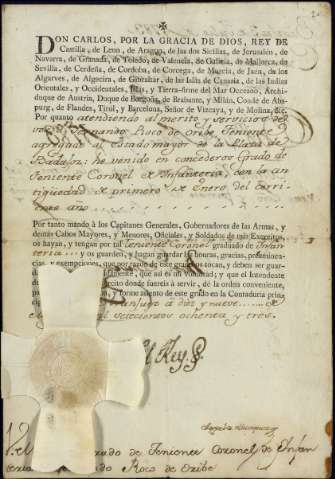 DON CARLOS, POR LA GRACIA DE DIOS, REY DE
Castilla, de Leon, de Aragon, de las dos Sicilias, de Jerusalén, de
Navarra, de Granada, de Toledo, de Valencia, de Galicia, de Mallorca, de
Sevilla, de Cerdeña, de Cordoba, de Corcega, de Murcia, de Jaen, de los
Algarves, de Algecira, de Gibraltar, de las Islas de Canaria, de las Indias
Orientales, y Occidentales, Islas, y Tierra-firme del Mar Occeano, Archi-
duque de Austria, Duque de Borgoña, de Brabante, y Milán, Conde de Abs-
purg, de Flandes, Tirol, y Barcelona, Señor de Vizcaya, y de Molina, &c.
Por quanto atendiendo al merito, y servicios de
Fernando Roco de Teniente
agregado al Estado mayor de la Plaza de
Badajoz; he venido en concederos Grado de
Teniente Coronel de Infanteria, con la an-
tiguedad de primero de Enero del corri-
ente año
Por tanto mando à los Capitanes Generales, Gobernadores de las Armas, y
demás Cabos Mayores, y Menores, Oficiales, y Soldados de mis Exercitos,
os hayan, y tengan por tal Teniente Coronel graduado de Infan-
teria y os guarden, y hagan guardar las honras, gracias, preeminen-
cias, y exempciones, que por razon de este grado os tocan, y deben ser guar-
que asi es mi voluntad; y que el Intendente
donde fuereis à servir, dé la orden conveniente,
y forme asiento de este grado en la Contaduría prin-
à diez y nueve de
setecientos ochenta y tres.
Yo el Rey
Grado de Teniente Coronel de Infan
Roco de